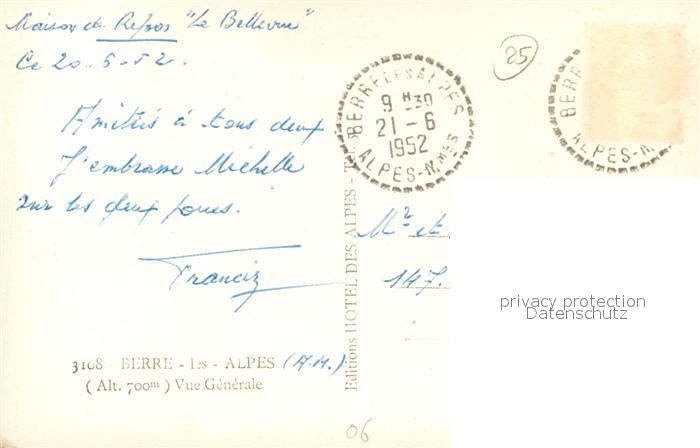 Maison de Repos "Le Bellevue"
Ce 20-6-52.
Amitiés à tous deux
J'embrasse Michelle
sur les deux joues.
Francis
3108 - BERRE - les - ALPES (A.M.)
( Alt. 700m ) Vue Générale
Editions HOTEL DES ALPES - Tél.
BERRE LES ALPES
9 H 30
21 - 6
1952
ALPES-M.MES
25
BERRE
ALPES-M.
Mr et
147.
privacy protection
Datenschutz
06